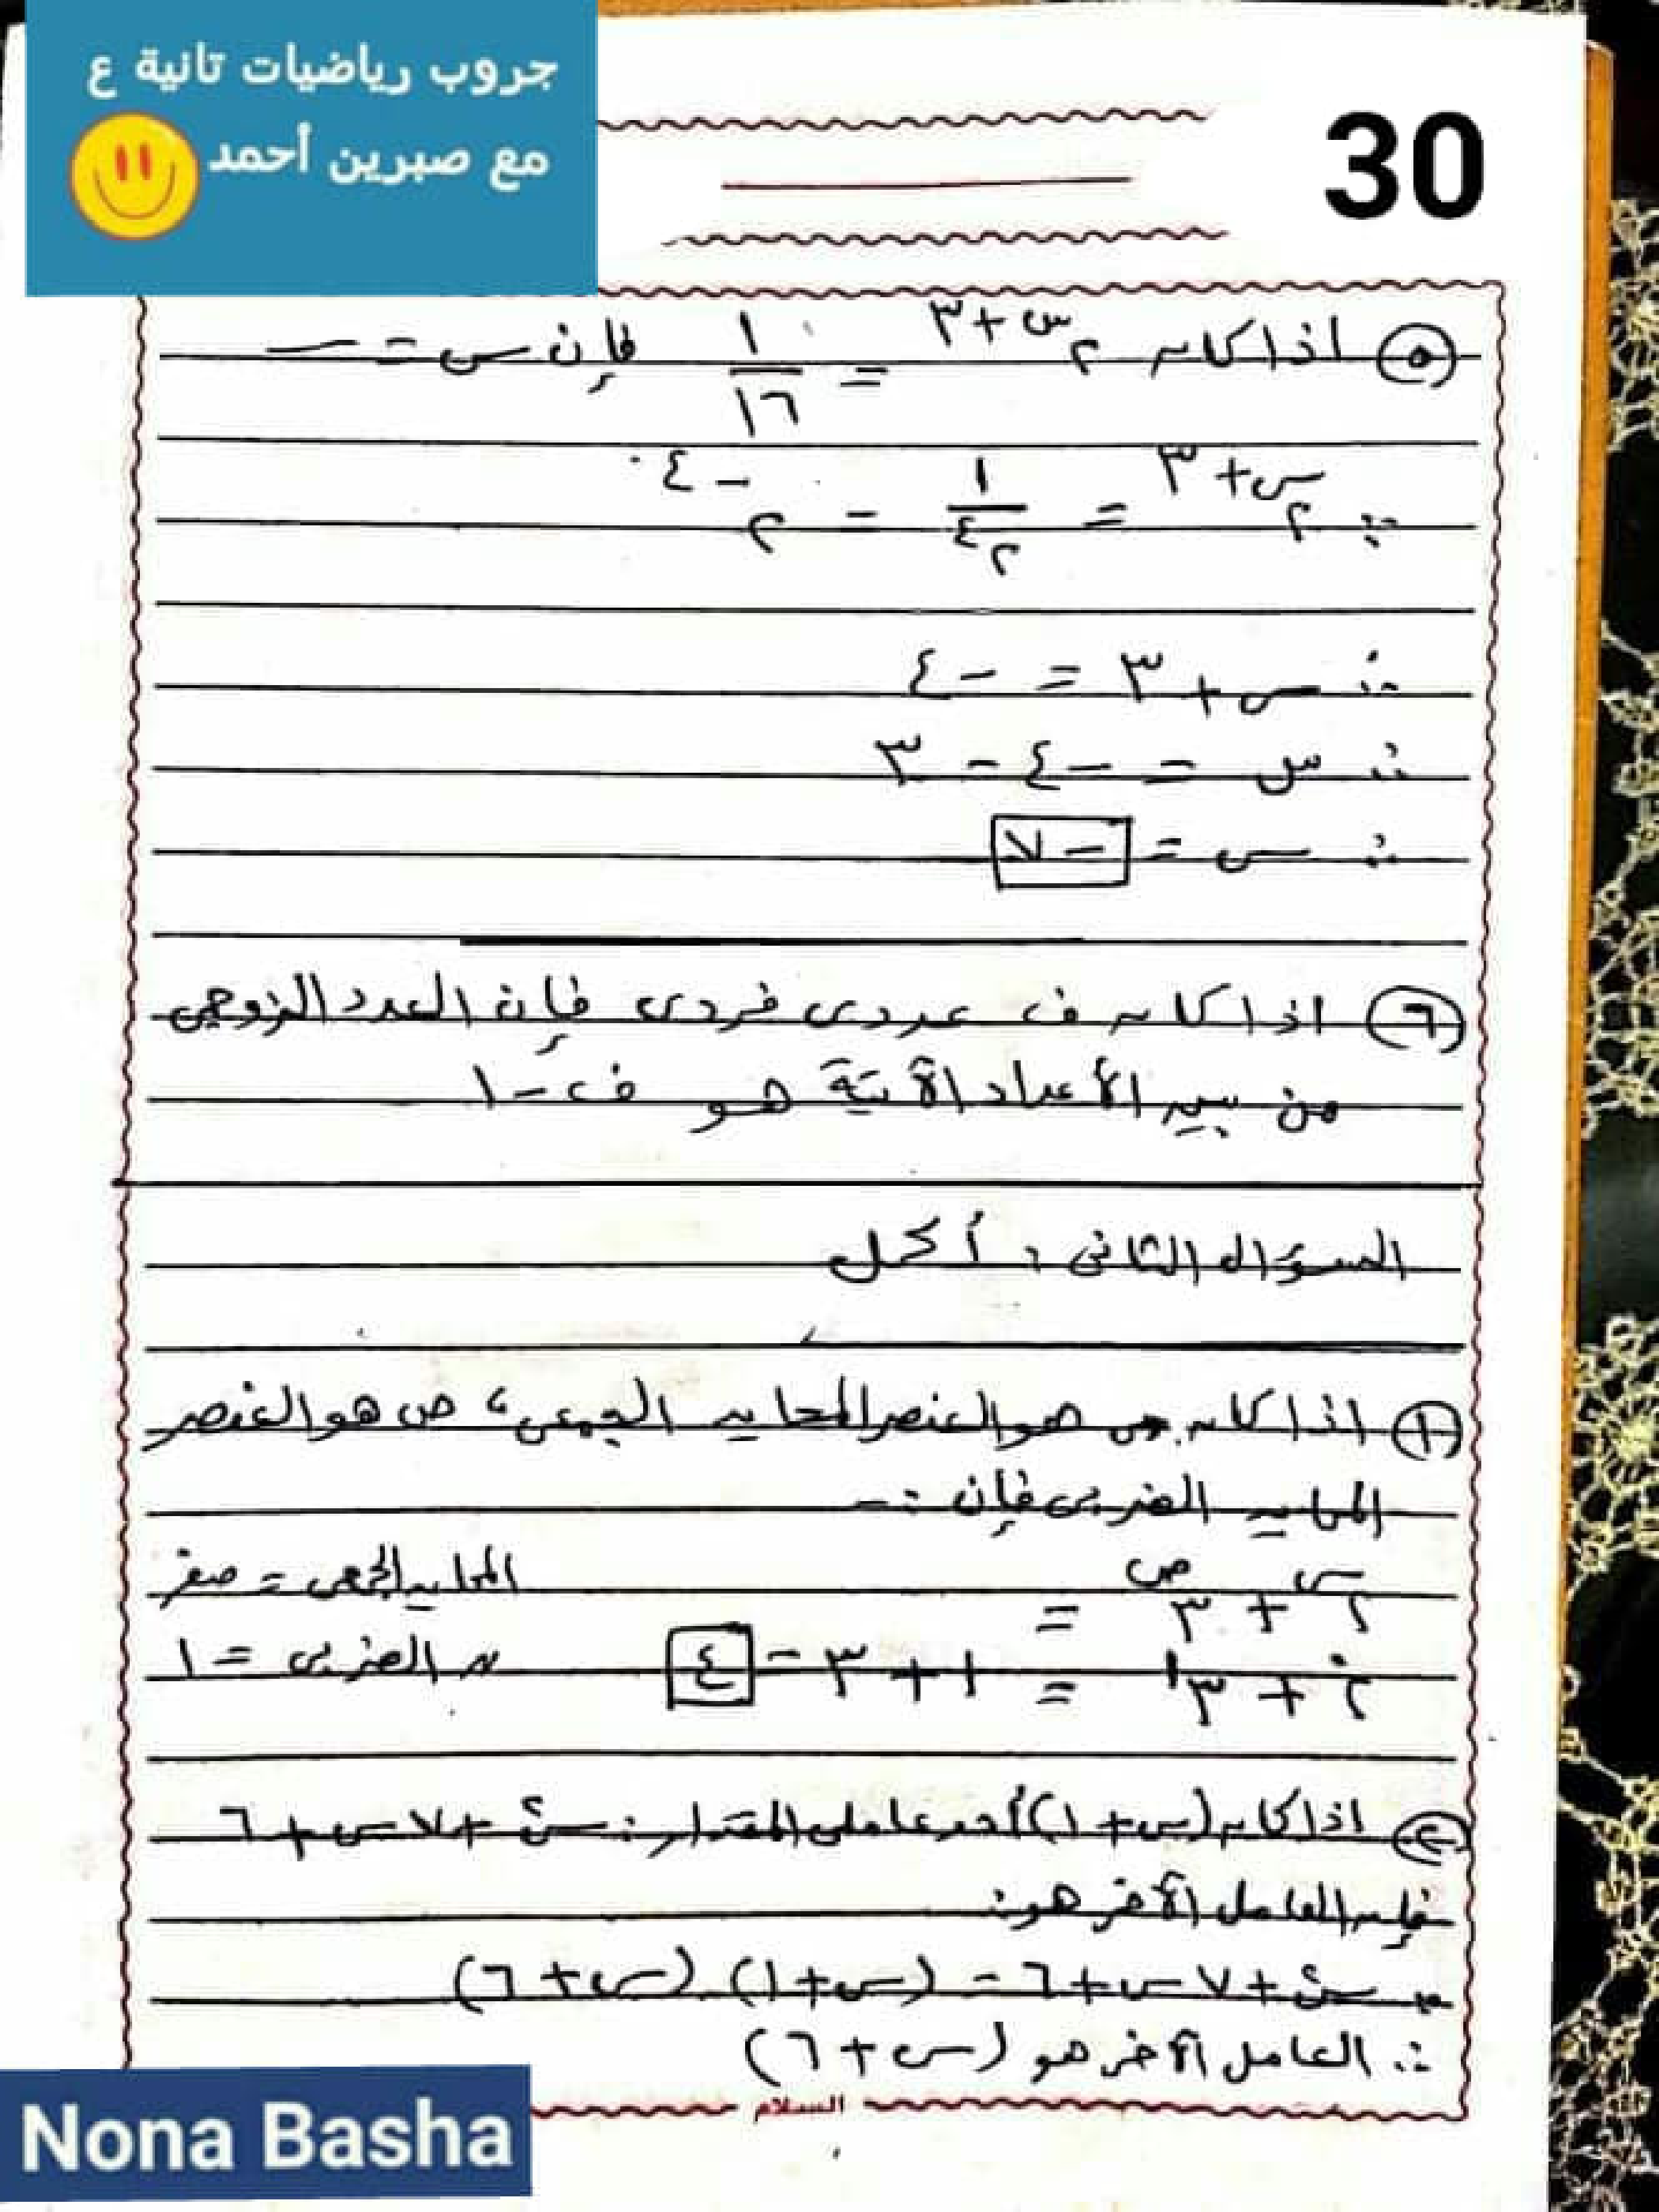 جروب رياضيات تانية ع
مع صبرين أحمد
30
٥ اذا كان ٢^(س+٣) = ١/١٦ فإن س = ــ
∵ ٢^(س+٣) = ١/٢^٤ = ٢^-٤
∴ س + ٣ = -٤
∴ س = -٤ - ٣
∴ س = -٧
٦ اذا كان ف عددى فردى فإن العدد الزوجى
من بين الأعداد الآتية هو ف - ١
السؤال الثانى : أكمل
١ اذا كان س هو العنصر المحايد الجمعى ، ص هو العنصر
المحايد الضربى فإن :-
٢^س + ٣^ص = المحايد الجمعى = صفر
٢^٠ + ٣^١ = ١ + ٣ = ٤ 〃 الضربى = ١
٢ اذا كان (س + ١) أحد عاملى المقدار : س^٢ + ٧س + ٦
فإن العامل الآخر هو :
∵ س^٢ + ٧س + ٦ = (س + ١) (س + ٦)
∴ العامل الآخر هو (س + ٦)
السلام
Nona Basha